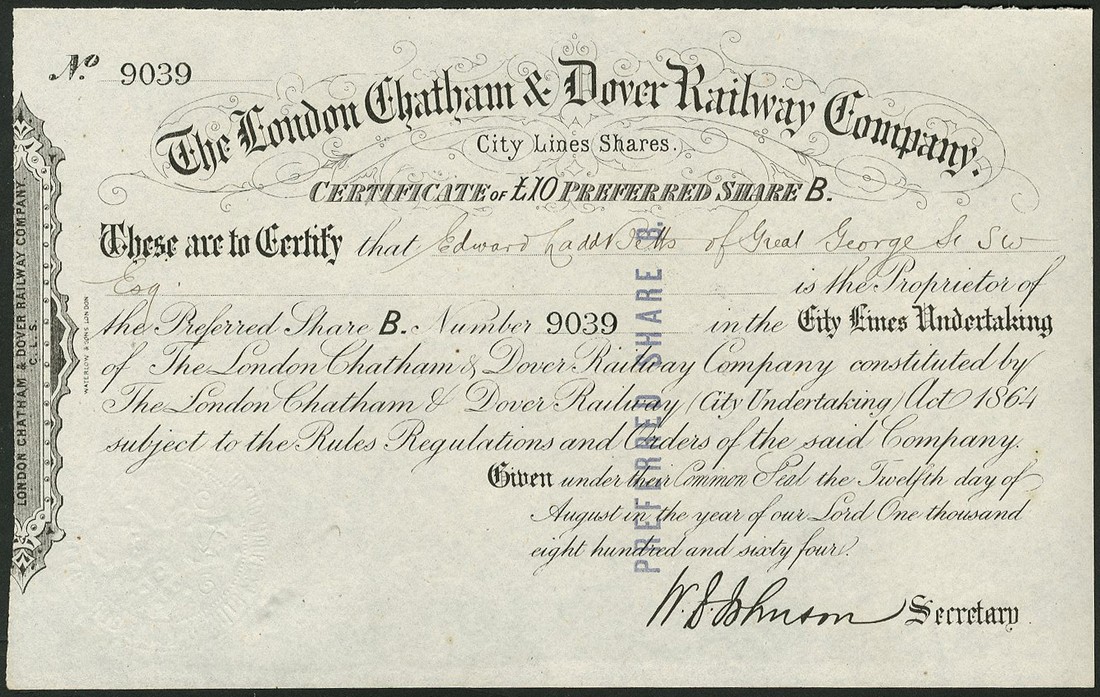 No 9039
The London Chatham & Dover Railway Company.
City Lines Shares.
CERTIFICATE OF £10 PREFERRED SHARE B.
These are to Certify that Edward Ladd Betts of Great George St SW
Esq. is the Proprietor of
the Preferred Share B. Number 9039 in the City Lines Undertaking
of The London Chatham & Dover Railway Company constituted by
The London Chatham & Dover Railway (City Undertaking) Act 1864
subject to the Rules Regulations and Orders of the said Company.
Given under their Common Seal the Twelfth day of
August in the year of our Lord One thousand
eight hundred and sixty four.
W. D. Johnson Secretary
PREFERRED SHARE B.
LONDON CHATHAM & DOVER RAILWAY COMPANY.
C. L. S.
WATERLOW & SONS LONDON